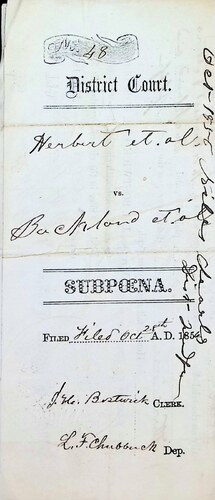 No. 48
District Court.
Herbert et. al.
vs.
et. al
SUBPŒNA.
FILED Filed Oct 25th A. D. 185
J. H. Bostwick CLERK.
L. F. Chubbuck Dep.
Oct